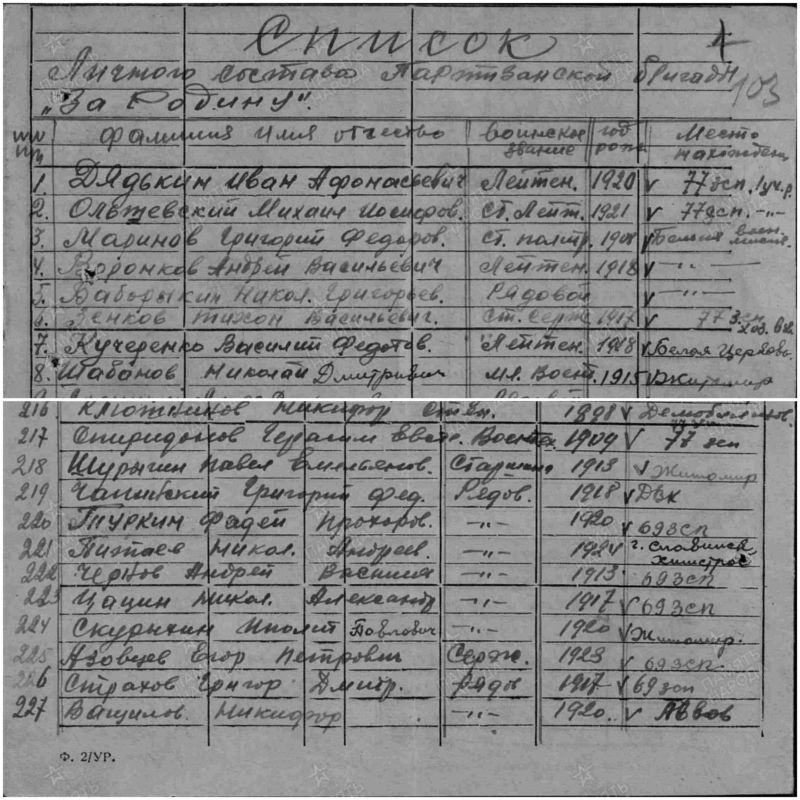 Список
Личного состава Партизанской бригады
"За Родину".
103
№№ пп фамилия имя отчество воинское звание год рожд Место нахожден
1. Дядькин Иван Афонасьевич Лейтен. 1920 v 77 зсп. 1 уч.р.
2. Ольшевский Михаил Иосифов. Ст. Лейт. 1921 v 77 зсп. -"-
3. Маринов Григорий Федоров. Ст. политр. 1908 v
4. Воронков Андрей Васильевич Лейтен. 1918 v -"-
5. Бабарыкин Никол. Григорьев. Рядовой v -"-
6. Зенков Тихон Васильевич. Ст. Серж. 1917 v 77 зсп
7. Кучеренко Василий Федотов. Лейтен. 1918 v Белая Церковь.
8. Шабанов Николай Дмитриевич мл. Воент. 1915 v Житомир
216 Никифор Степ. 1898 v
217 Спиридонов Герасим Воента 1909 v 77 зсп
218 Шурыгин Павел Емильянов. Старшина 1913 v Житомир
219 Григорий Фед. Рядов. 1918 v
220 Тюркин Фадей Прохоров. -"- 1920 v 69 зсп
221 Питаев Никол. Андреев. -"- 1924 г. Славинск,
222 Чернов Андрей Василия -"- 1913 v 69 зсп
223 Цацин Никол. Александр -"- 1917 v 69 зсп
224 Скурыхин Иполит Павлович -"- 1920 v Житомир.
225 Азовцев Егор Петрович Серж. 1923 v 69 зсп
226 Страхов Григор Дмитр. Рядов 1917 v 69 зсп
227 Ващилов. Никифор -"- 1920. v Львов
Ф. 2/УР.